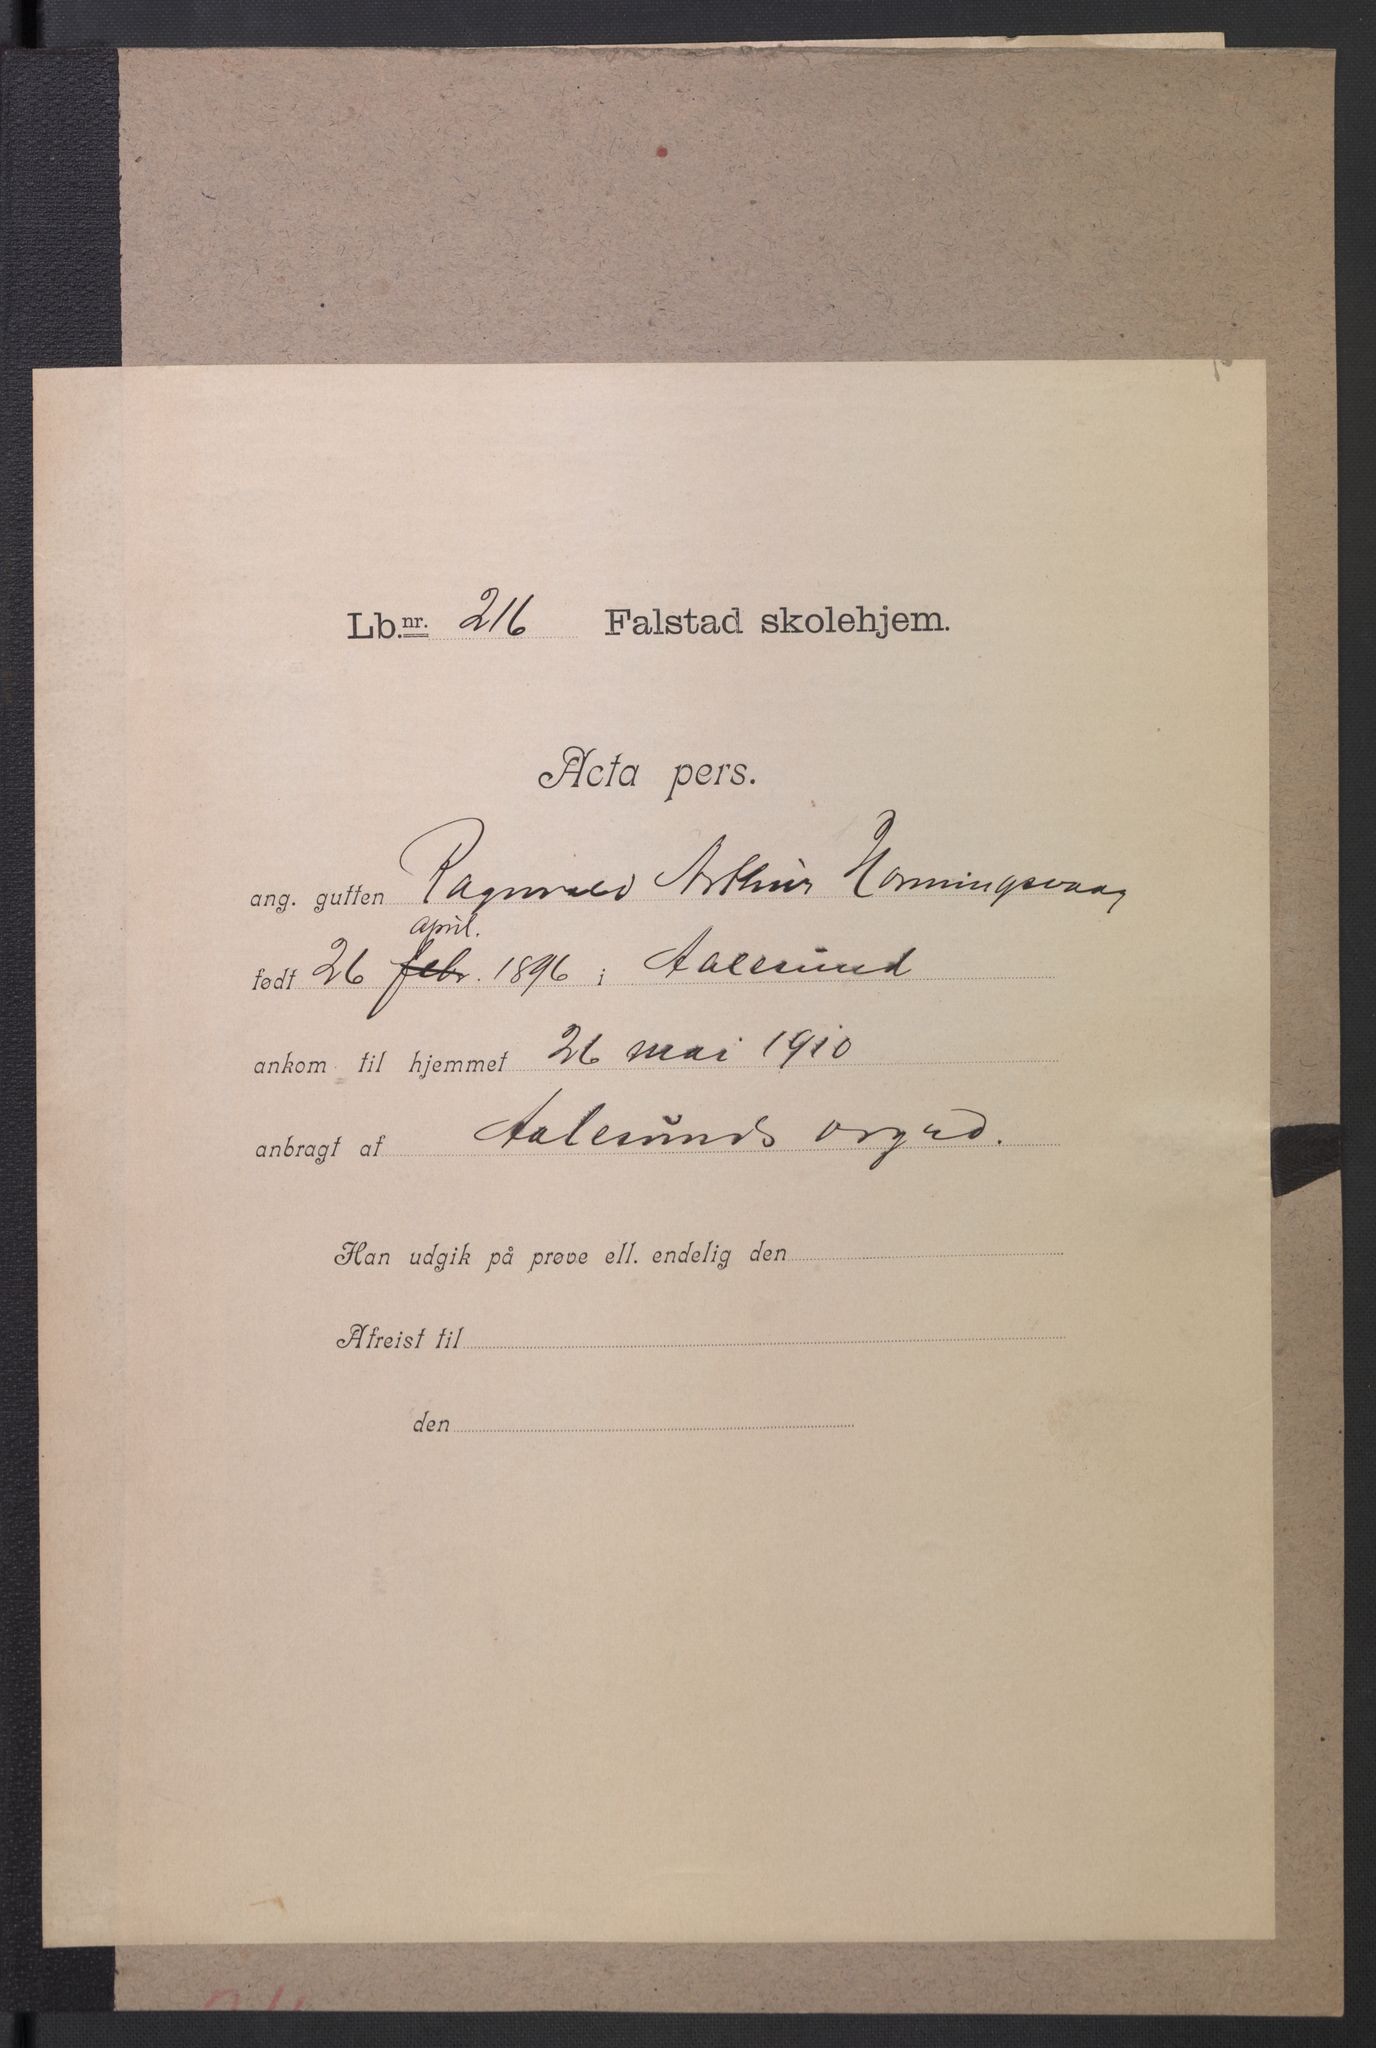 Lb. nr. 216 Falstad skolehjem.
Acta pers.
ang. gutten Ragnvald Arthur Honningsvaag
april.
født 26 febr. 1896 i Aalesund
ankom til hjemmet 26 mai 1910
anbragt af Aalesunds vrgrd.
Han udgik på prøve ell. endelig den
Afreist til
den